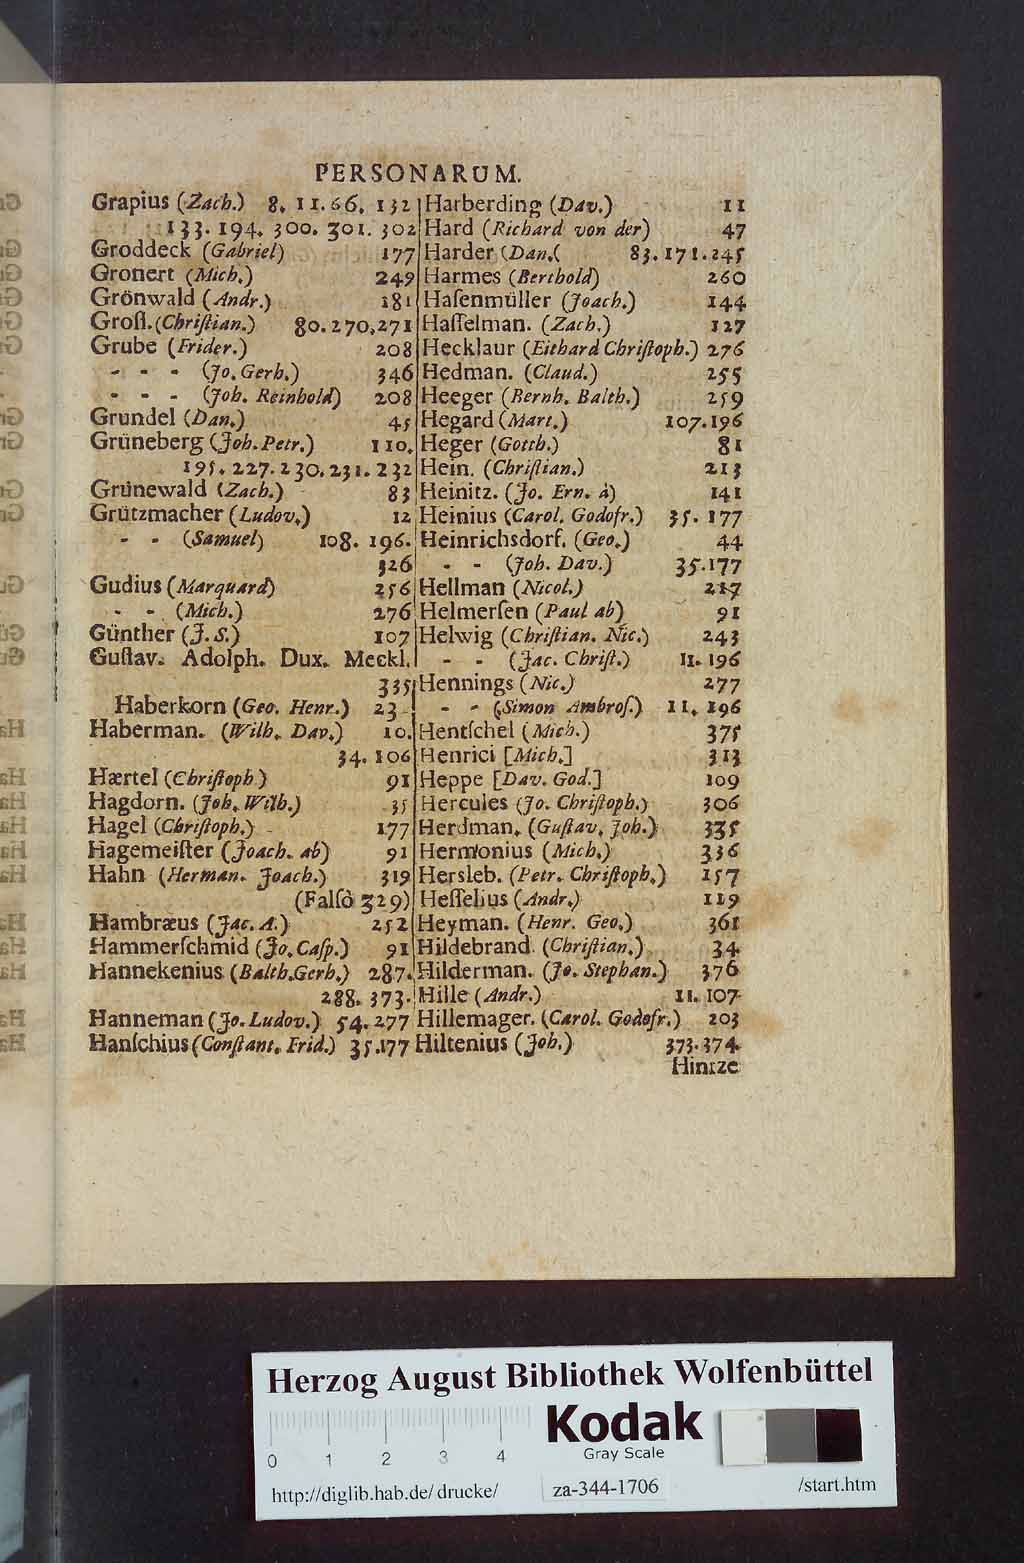 PERSONARUM.
Grapius (Zach.) 8. 11. 66. 132
133. 194. 300. 301. 302
Groddeck (Gabriel) 177
Gronert (Mich.) 249
Grönwald (Andr.) 181
Groſſ. (Chriſtian.) 80. 270,271
Grube (Frider.) 208
- - - (Jo. Gerh.) 346
- - - (Joh. Reinhold) 208
Grundel (Dan.) 45
Grüneberg (Joh. Petr.) 110.
195. 227. 230. 231. 232
Grünewald (Zach.) 83
Grützmacher (Ludov.) 12
- - (Samuel) 108. 196.
326
Gudius (Marquard) 256
- - (Mich.) 276
Günther (J. S.) 107
Guſtav. Adolph. Dux. Meckl.
335
Haberkorn (Geo. Henr.) 23
Haberman. (Wilh. Dav.) 10.
34. 106
Hærtel (Chriſtoph.) 91
Hagdorn. (Joh. Wilh.) 35
Hagel (Chriſtoph.) 177
Hagemeiſter (Joach. ab) 91
Hahn (Herman. Joach.) 319
(Falſò 329)
Hambræus (Jac. A.) 252
Hammerſchmid (Jo. Caſp.) 91
Hannekenius (Balth. Gerh.) 287.
288. 373.
Hanneman (Jo. Ludov.) 54. 277
Hanſchius (Conſtant. Frid.) 35.177
Harberding (Dav.) 11
Hard (Richard von der) 47
Harder (Dan.( 83. 171. 245
Harmes (Berthold) 260
Haſenmüller (Joach.) 144
Haſſelman. (Zach.) 127
Hecklaur (Eithard Chriſtoph.) 276
Hedman. (Claud.) 255
Heeger (Bernh. Balth.) 259
Hegard (Mart.) 107.196
Heger (Gotth.) 81
Hein. (Chriſtian.) 213
Heinitz. (Jo. Ern. à) 141
Heinius (Carol. Godofr.) 35. 177
Heinrichsdorf. (Geo.) 44
- - (Joh. Dav.) 35.177
Hellman (Nicol.) 217
Helmerſen (Paul ab) 91
Helwig (Chriſtian. Nic.) 243
- - (Jac. Chriſt.) 11. 196
Hennings (Nic.) 277
- - (Simon Ambroſ.) 11. 196
Hentſchel (Mich.) 375
Henrici [Mich.] 313
Heppe [Dav. God.] 109
Hercules (Jo. Chriſtoph.) 306
Herdman. (Guſtav. Joh.) 335
Hermonius (Mich.) 336
Hersleb. (Petr. Chriſtoph.) 157
Heſſelius (Andr.) 119
Heyman. (Henr. Geo.) 361
Hildebrand. (Chriſtian.) 34
Hilderman. (Jo. Stephan.) 376
Hille (Andr.) 11. 107
Hillemager. (Carol. Godofr.) 203
Hiltenius (Joh.) 373.374
Hintze
Herzog August Bibliothek Wolfenbüttel
Kodak
Gray Scale
0 1 2 3 4
http://diglib.hab.de/drucke/ za-344-1706 /start.htm